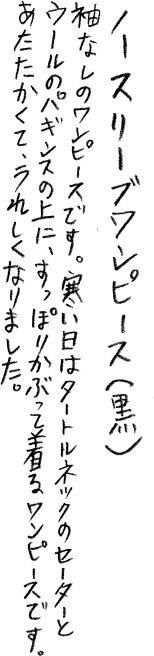 ノースリーブワンピース(黒)
袖なしのワンピースです。寒い日はタートルネックのセーターと
ウールのパギンスの上に、すっぽりかぶって着るワンピースです。
あたたかくて、うれしくなりました。